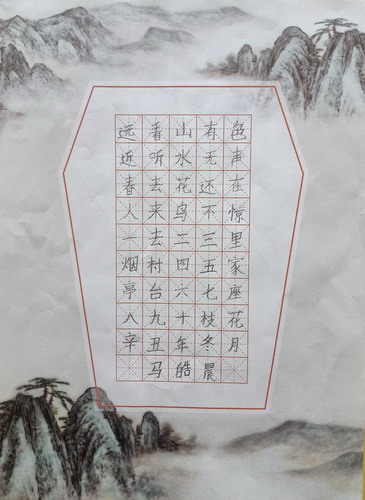 远看山有色
近听水无声
春去花还在
人来鸟不惊
一去二三里
烟村四五家
亭台六七座
八九十枝花
辛丑年冬月
马皓晨